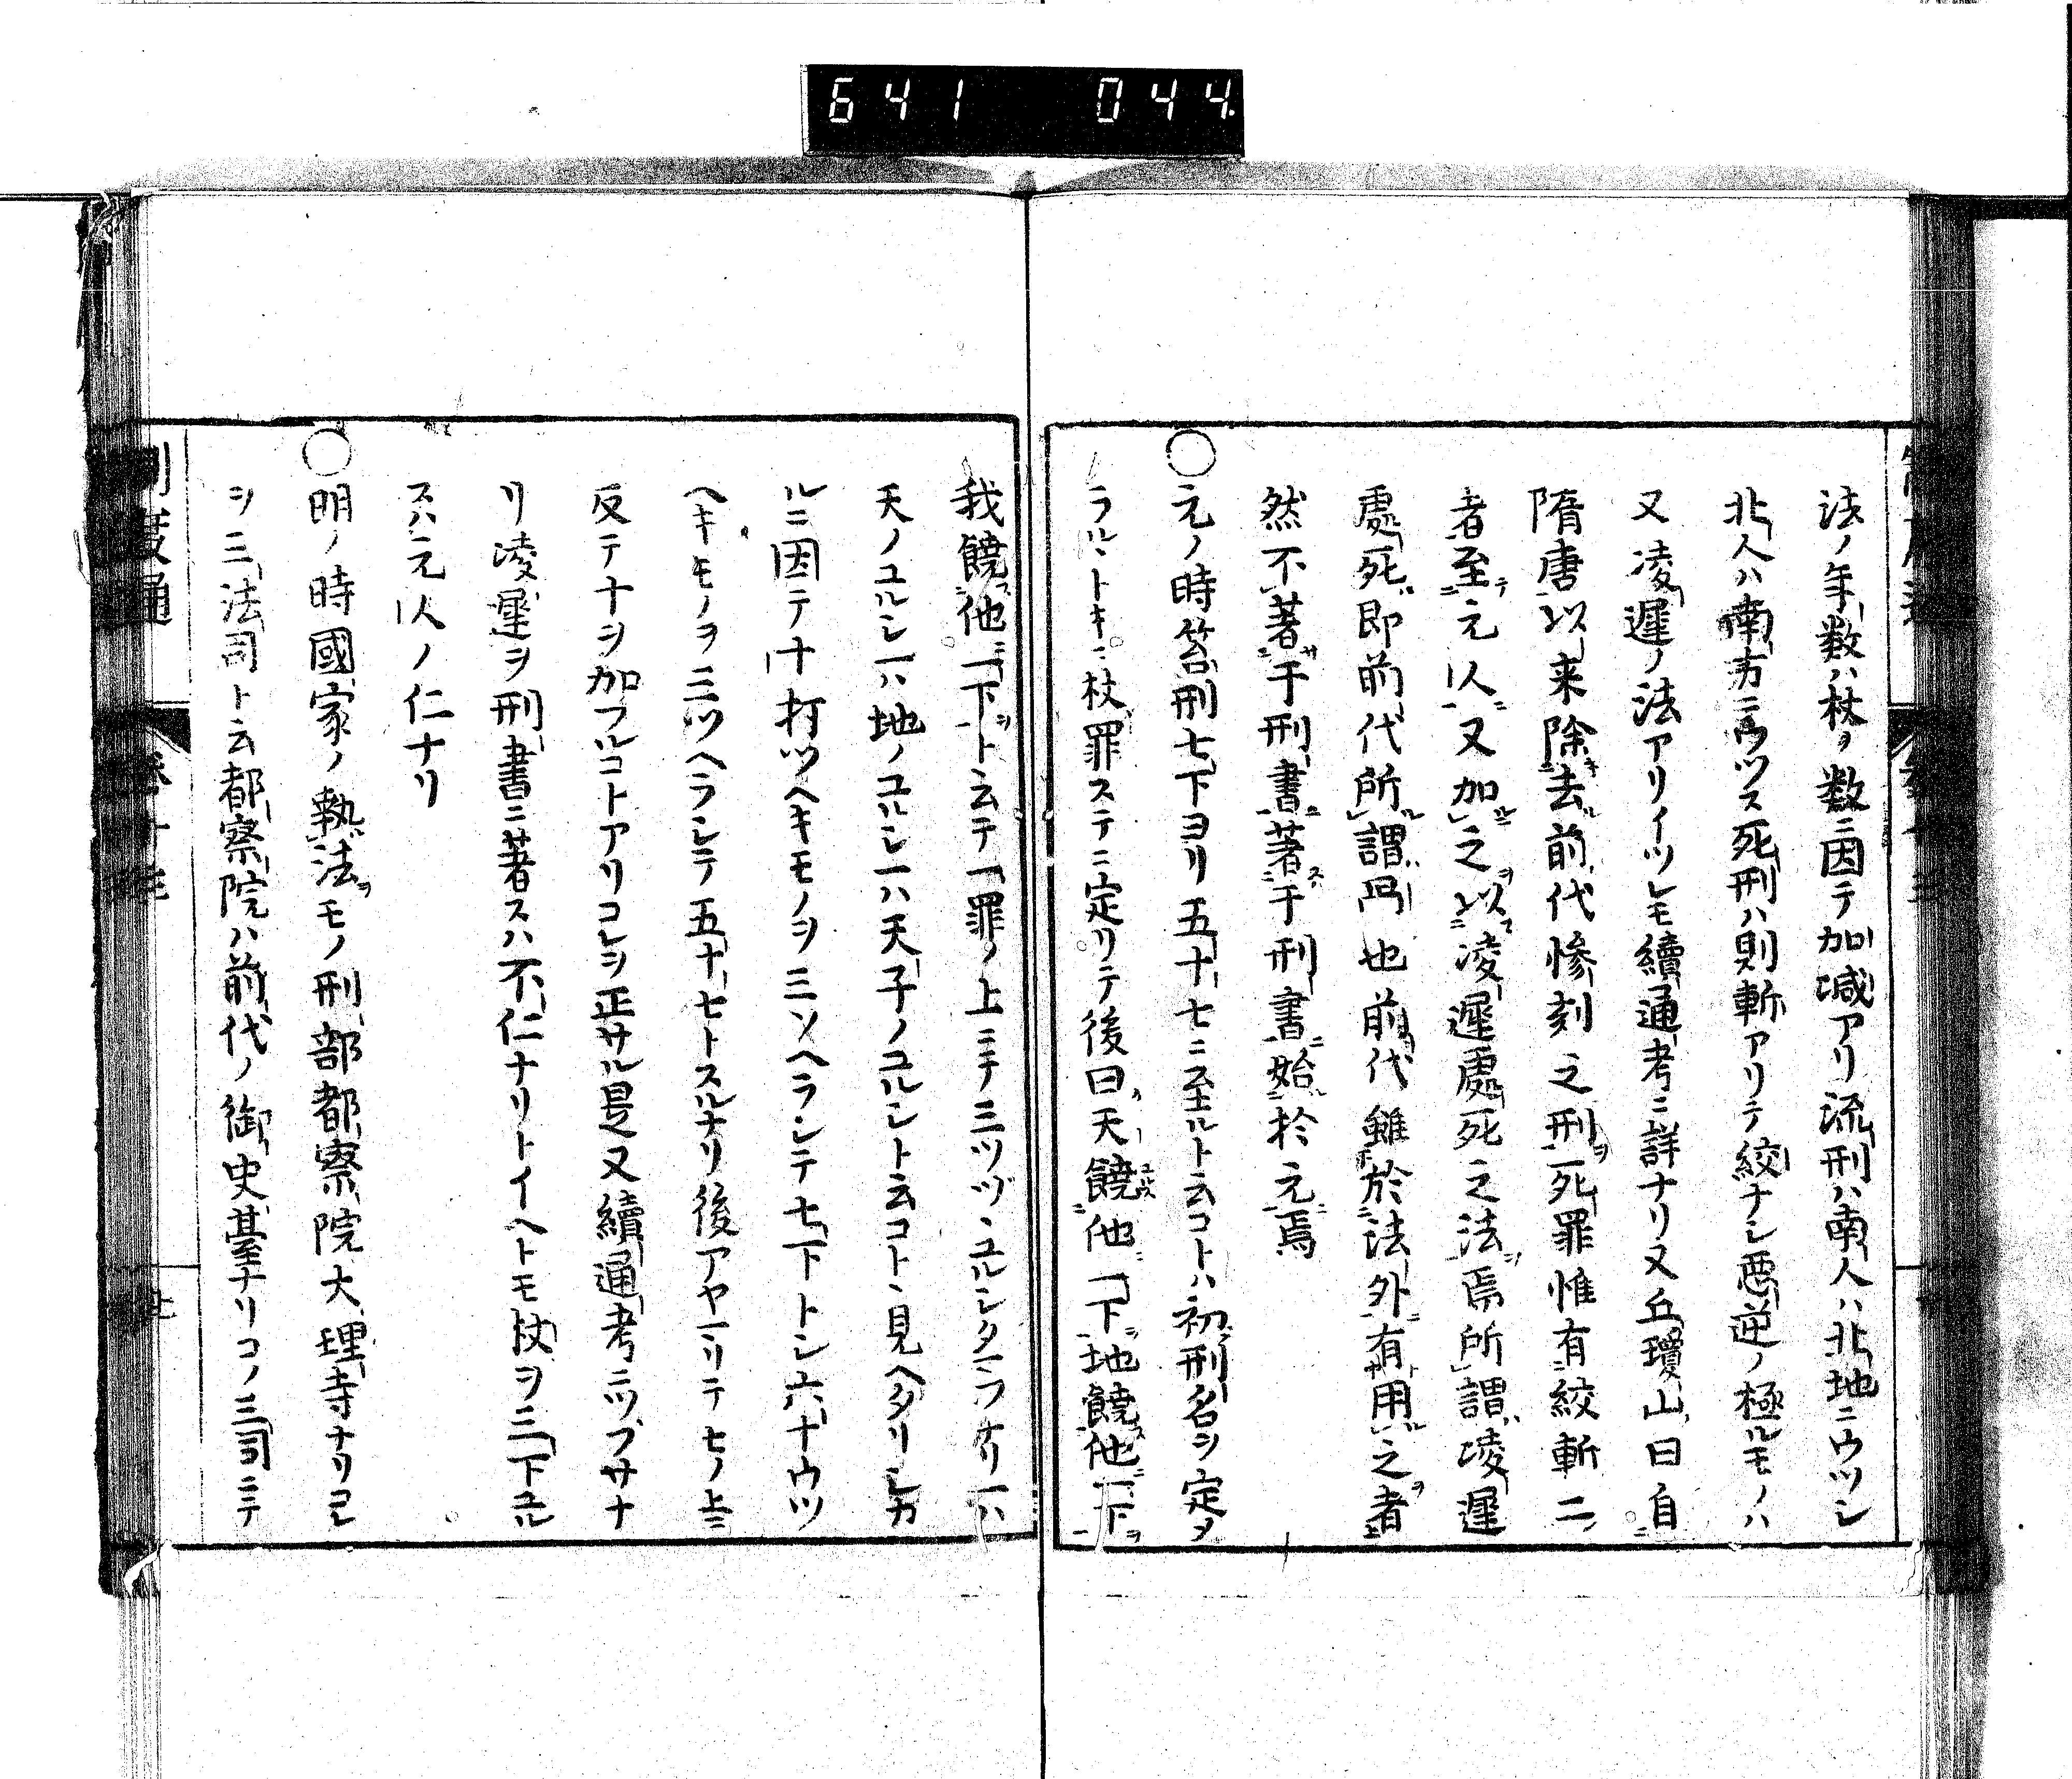 641 044
法ノ年数ハ杖ヲ数ニ因テ加減アリ流刑ハ南人ハ北地ニウツシ
北人ハ南方ニウツス死刑ハ則斬アリテ絞ナシ悪逆ノ極ルモノハ
又凌遅ノ法アリイツレモ續通考ニ詳ナリ又丘瓊山曰自
隋唐以来除去前代惨刻之刑死罪惟有絞斬二
者至元人又加之以凌遅處死之法焉所謂凌遅
處死即前代所謂冎也前代雖於法外有用之者
然不著于刑書著于刑書始於元焉
○元ノ時笞刑七下ヨリ五十七ニ至ルト云コトハ初刑名ヲ定ヲ
ラルヽトキニ杖罪ステニ定リテ後曰天饒他一下地饒他一下
我饒他一下ト云テ一罪ノ上ニテ三ツヅヽユルシタマフナリ一ハ
天ノユルシ一ハ地ノユルシ一ハ天子ノユルシト云コトヽ見ヘタリシカ
ルニ因テ十打ツヘキモノヲ三ソヘラシテ七下トシ六十ウツ
ヘキモノヲ三ツヘラシテ五十七トスルナリ後アヤマリテ七ノ上ニ
反テ十ヲ加フルコトアリコレヲ正サル是又續通考ニツブサナ
リ凌遅ヲ刑書ニ著スハ不仁ナリトイヘトモ杖ヲ三下ユル
スハ元人ノ仁ナリ
○明ノ時國家ノ執法ヲモノ刑部都察院大理寺ナリコレ
ヲ三法司ト云都察院ハ前代ノ御史臺ナリコノ三司ニテ
制度通